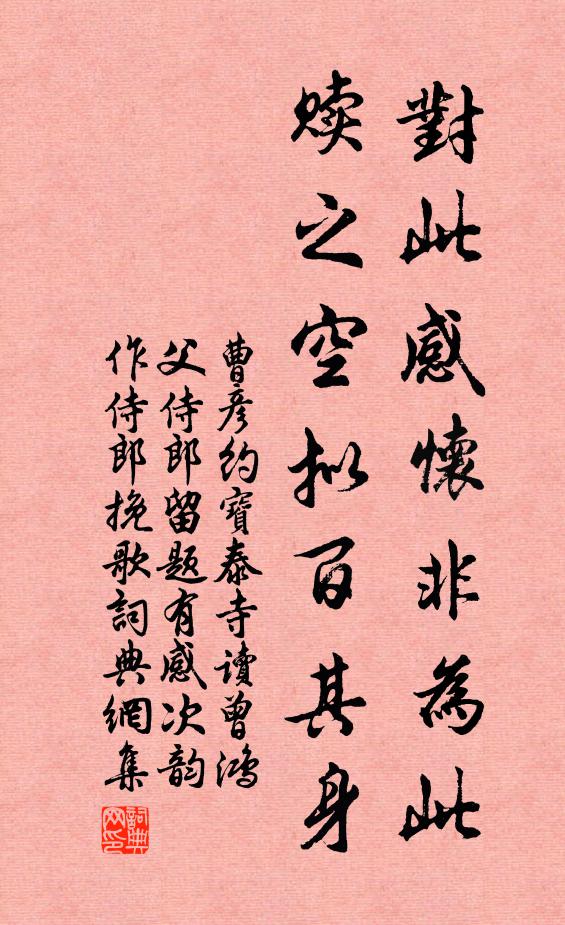 對此感懷非為此
贖之空拟百其身
曹彦約寶泰寺讀曾鴻
父侍郎留題有感次韵
作侍郎挽歌詞典網集
詞典
网印